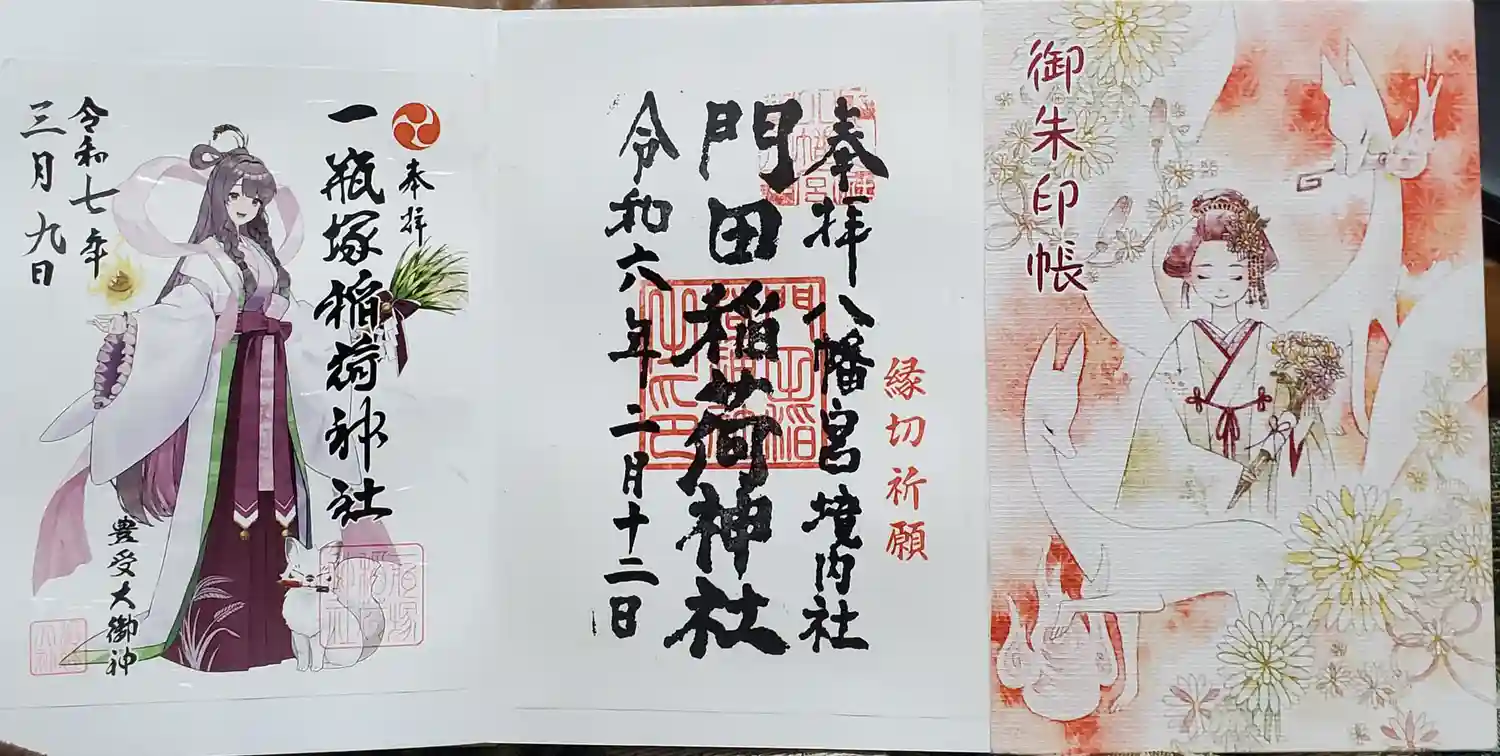 御朱印帳
縁切祈願
奉拝 八幡宮境内社
門田稲荷神社
令和六年二月十二日
奉拝
一瓶塚稲荷神社
豊受大御神
令和七年
三月九日